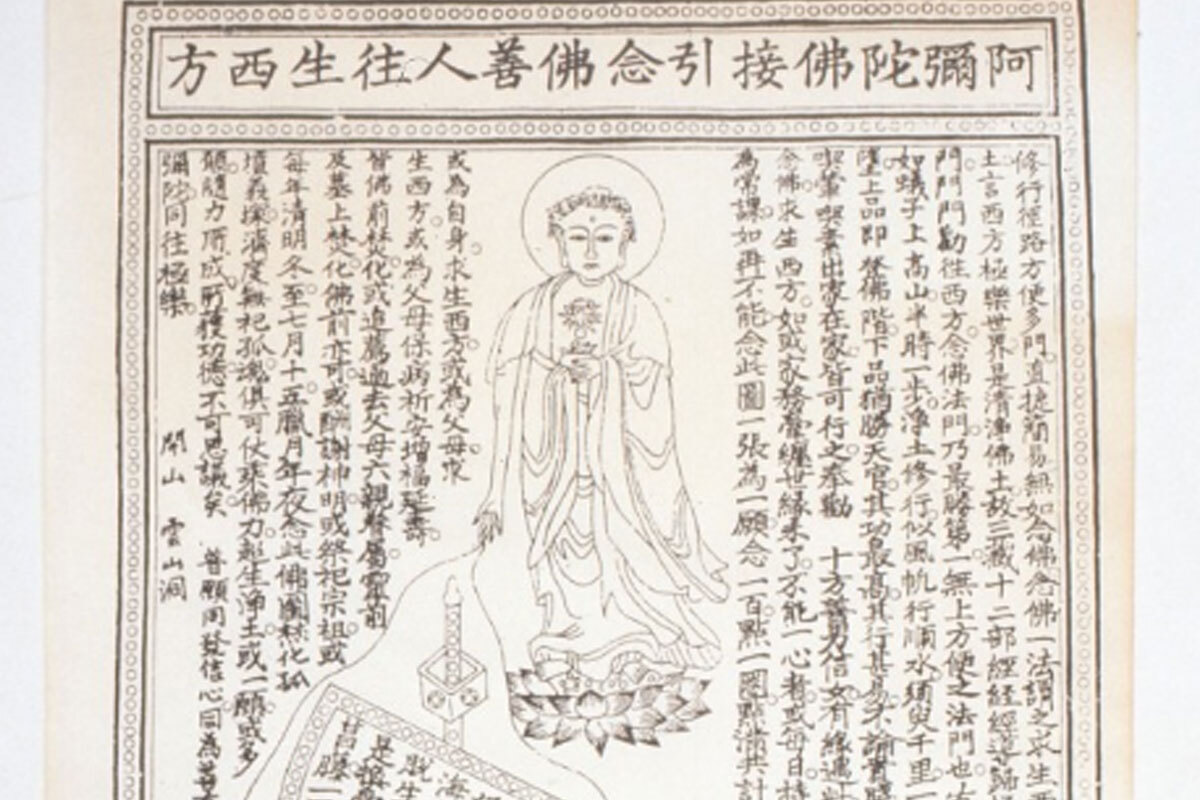 阿彌陀佛接引念佛善人往生西方
修行徑路方便多門直捷簡易無如念佛念佛一法謂之求生
土言西方極樂世界是清淨佛土故三藏十二部經經經導歸
門門門勸往西方念佛法門乃最勝第一無上方便之法門也
如蟻子上高山半時一步淨土修行似風帆行順水須臾千里一
墮上品即登佛階下品猶勝天宮其功最高其行甚易不論貴賤
喫葷喫素出家在家皆可行之奉勸 十方善男信女有緣遇
念佛求生西方。如或家務營纏世緣未了。不能一心者或每日持
為常課。如再不能念此圖一張為一願念一百點一圈。點滿共計
或為自身求生西方或為父母求
生西方。或為父母保病祈安增福延壽。
皆佛前焚化。或追薦過去父母六親眷屬靈前
及墓上焚化佛前亦可或酬謝神明或祭祀宗祖。或
每年清明冬至七月十五臘月年夜念此佛圖焚化孤
墳義塚濟度無祀孤魂俱可仗乘佛力超生淨土或一願或多
願隨力所成。所獲功德不可思議矣 普願同發信心同為善
彌陀同往極樂。 開山 雲山洞